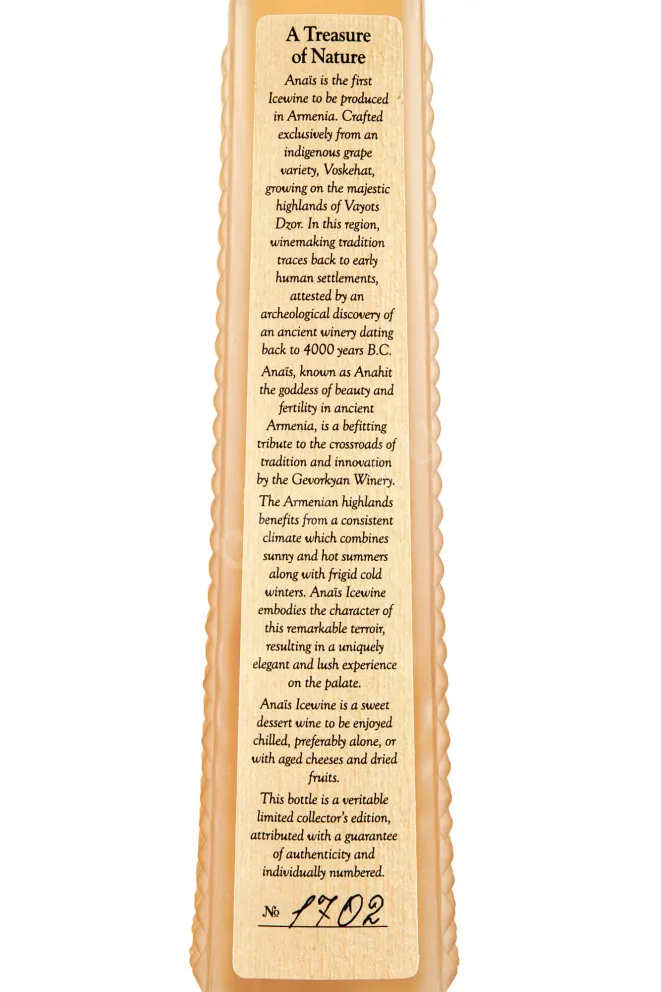 A Treasure
of Nature
Anaïs is the first
Icewine to be produced
in Armenia. Crafted
exclusively from an
indigenous grape
variety, Voskehat,
growing on the majestic
highlands of Vayots
Dzor. In this region,
winemaking tradition
traces back to early
human settlements,
attested by an
archeological discovery of
an ancient winery dating
back to 4000 years B.C.
Anaïs, known as Anahit
the goddess of beauty and
fertility in ancient
Armenia, is a befitting
tribute to the crossroads of
tradition and innovation
by the Gevorkyan Winery.
The Armenian highlands
benefits from a consistent
climate which combines
sunny and hot summers
along with frigid cold
winters. Anaïs Icewine
embodies the character of
this remarkable terroir,
resulting in a uniquely
elegant and lush experience
on the palate.
Anaïs Icewine is a sweet
dessert wine to be enjoyed
chilled, preferably alone, or
with aged cheeses and dried
fruits.
This bottle is a veritable
limited collector's edition,
attributed with a guarantee
of authenticity and
individually numbered.
№ 1702